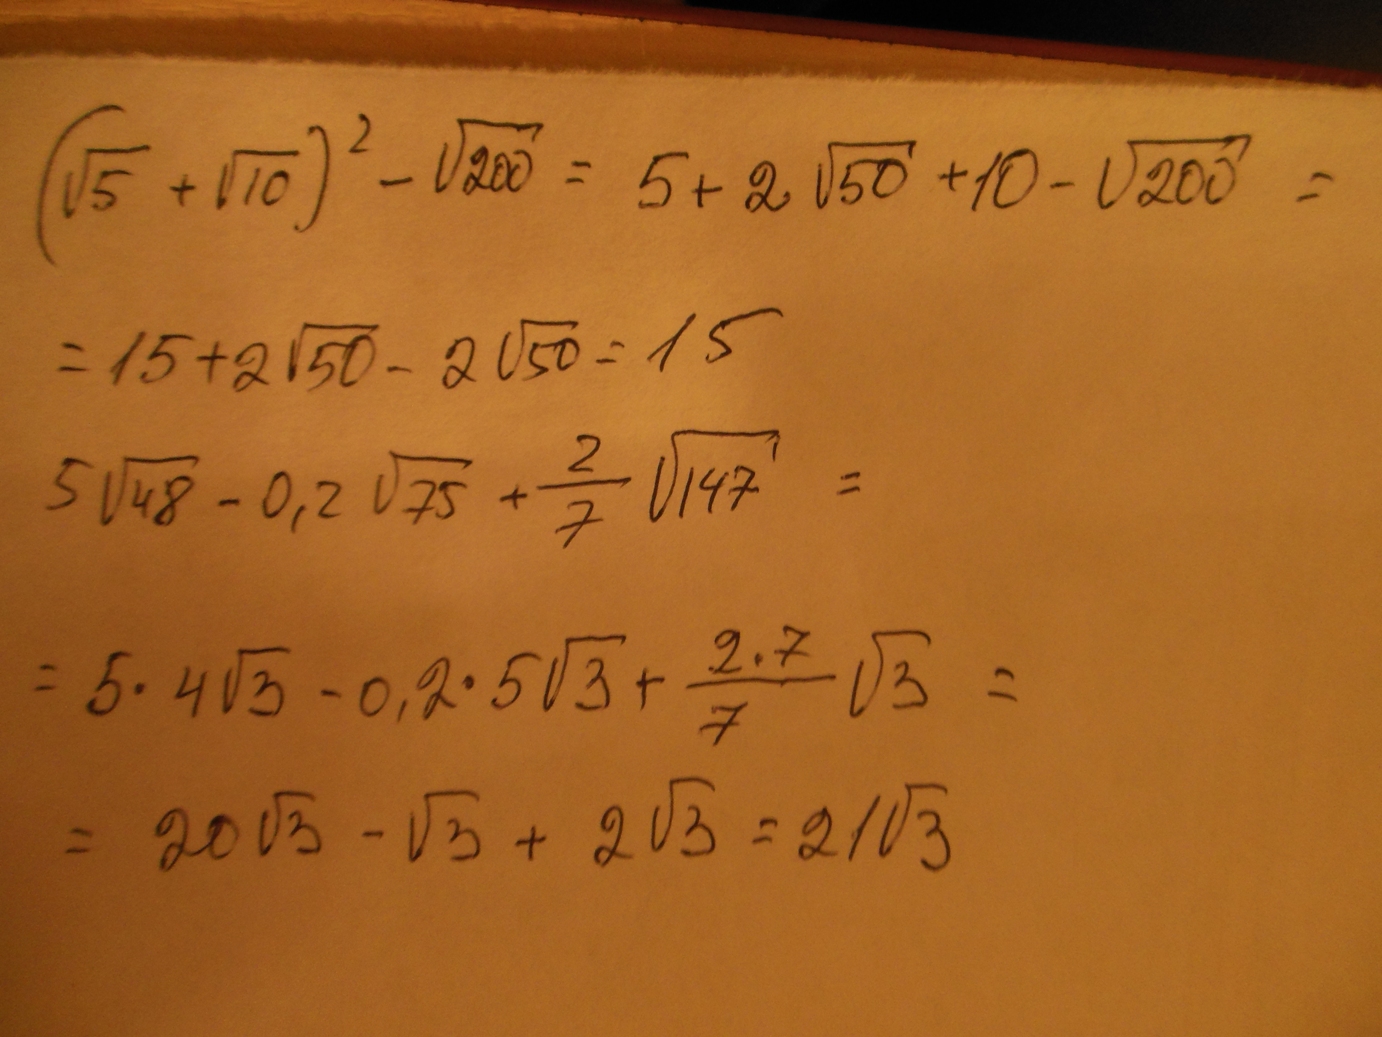 (√5 + √10)² - √200 = 5 + 2 √50 + 10 - √200 =
= 15 + 2√50 - 2√50 = 15
5√48 - 0,2 √75 + 2/7 √147 =
= 5 · 4√3 - 0,2 · 5√3 + 2·7/7 √3 =
= 20√3 - √3 + 2√3 = 21√3